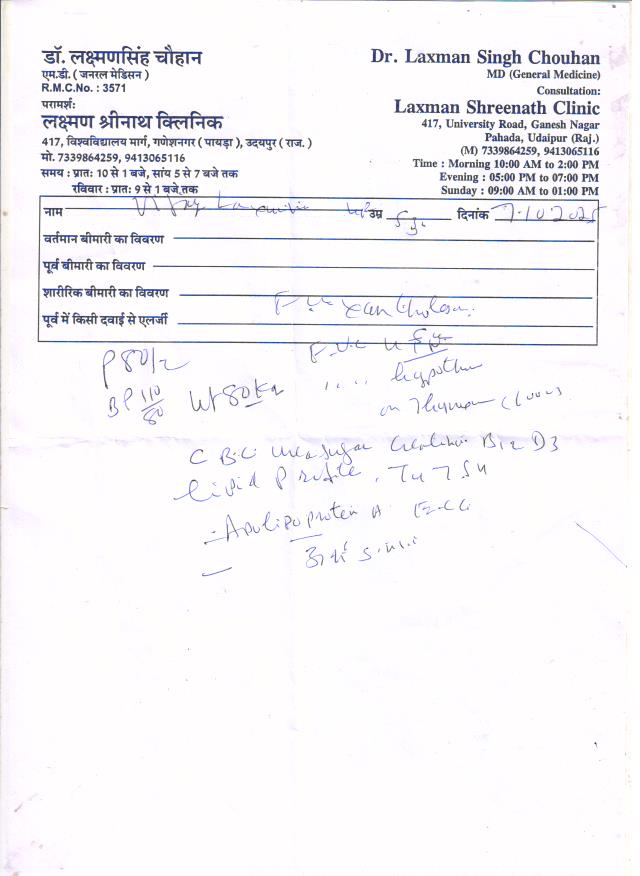 डॉ. लक्ष्मणसिंह चौहान
एम.डी. ( जनरल मेडिसन )
R.M.C.No. : 3571
परामर्श:
लक्ष्मण श्रीनाथ क्लिनिक
417, विश्वविद्यालय मार्ग, गणेशनगर ( पायड़ा ), उदयपुर ( राज. )
मो. 7339864259, 9413065116
समय : प्रात: 10 से 1 बजे, सांय 5 से 7 बजे तक
रविवार : प्रात: 9 से 1 बजे तक
Dr. Laxman Singh Chouhan
MD (General Medicine)
Consultation:
Laxman Shreenath Clinic
417, University Road, Ganesh Nagar
Pahada, Udaipur (Raj.)
(M) 7339864259, 9413065116
Time : Morning 10:00 AM to 2:00 PM
Evening : 05:00 PM to 07:00 PM
Sunday : 09:00 AM to 01:00 PM
नाम उम्र दिनांक 7.10.2025
वर्तमान बीमारी का विवरण
पूर्व बीमारी का विवरण
शारीरिक बीमारी का विवरण
पूर्व में किसी दवाई से एलर्जी
P 80/
BP 110/80 Wt 80 Kg
C B C Urea Sugar Creatinin B12 D3
Lipid Profile, T4 TSH
- Apolipoprotein A ECG